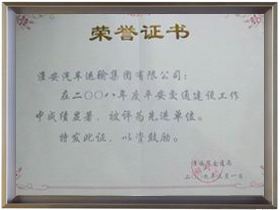 荣誉证书
淮安汽车运输集团有限公司：
在二〇〇八年度平安交通建设工作
中成绩显著，被评为先进单位。
特发此证，以资鼓励。